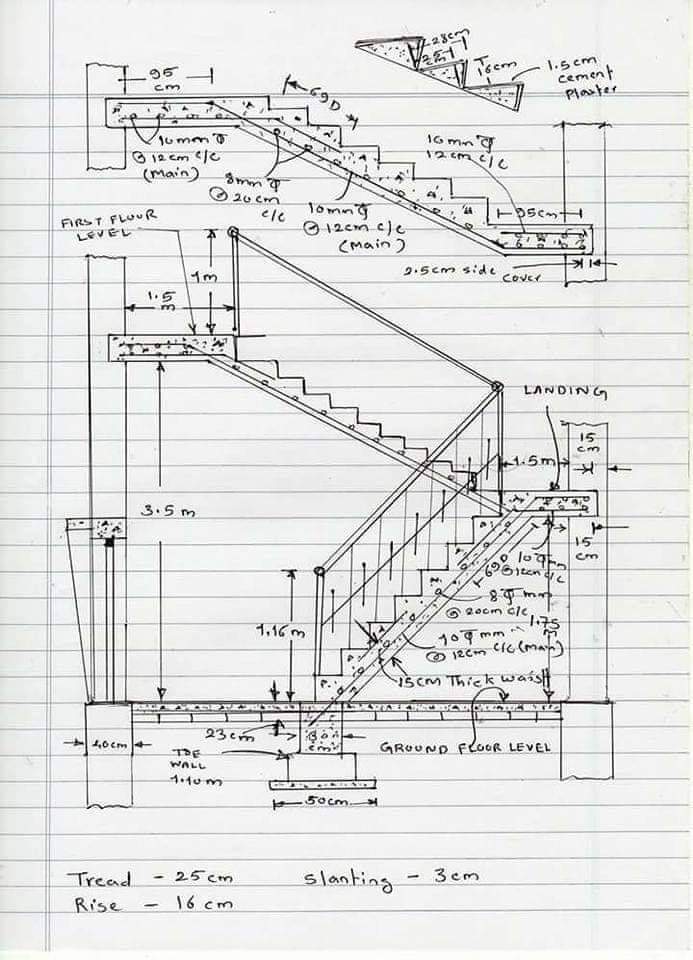 28cm
25
cm
16cm
1.5cm
cement
plaster
95
cm
69D
10mm Φ
@ 12cm c/c
(Main)
8mm Φ
@ 20cm
c/c
10mm Φ
@ 12cm c/c
(main)
10mm Φ
12cm c/c
95cm
2.5cm side
cover
FIRST FLOOR
LEVEL
1m
1.5
m
LANDING
15
cm
1.5m
3.5m
15
cm
69D
10 Φ mm
@ 12cm c/c
8 Φ mm
@ 20cm c/c
1.75
m
10 Φ mm
@ 12cm c/c (main)
1.16m
15cm Thick waist
23cm
30
cm
40cm
TOE
WALL
1.10m
GROUND FLOOR LEVEL
50cm
Tread - 25cm slanting - 3cm
Rise - 16cm